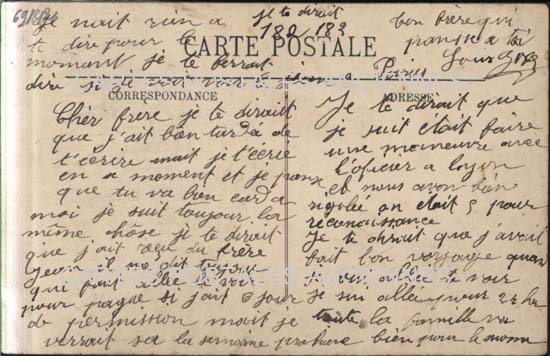 Je nait rien a
te dire pour le
moment je te
dire si
je te dirait
182 183
bon frère qui
pense a toi
Louis
CARTE POSTALE
CORRESPONDANCE
Chèr frere je te dirait
que j'ait bien tarda de
t'ecrire mait je t'ecrie
en ce moment et je panse
que tu va bien card a
moi je suit toujour la
même chôse je te dirait
que j'ait reçu du frère
il me dit toujour
qui fait allée le voir
pour paque si j'ait 6 jour
de permission mait je
verrait sa la semaine prochaine
ADRESSE
Je te dirait que
je suit était faire
une maneuvre avec
l'oficier a
et nous avon bien
rigolée on était 5 pour
reconaissance
Je te dirait que j'avait
fait bon voyage quan
je sui allée te voir
je sui allée pour 24 h
toute la famille va
bien pour le moman